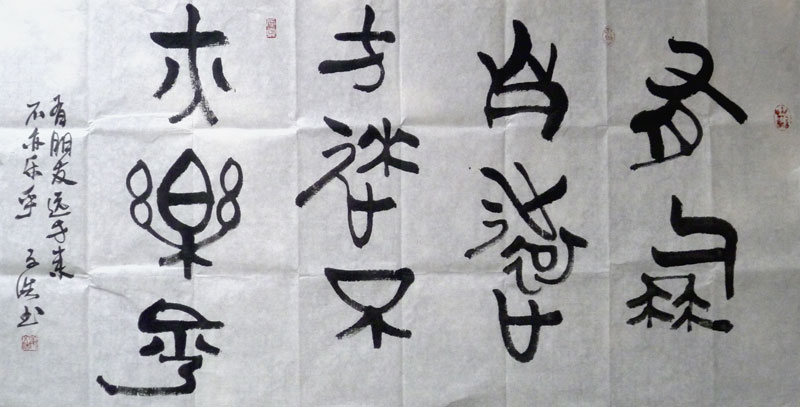 有朋
自遠
方來不
亦樂乎
有朋友远方来
不亦乐乎 书